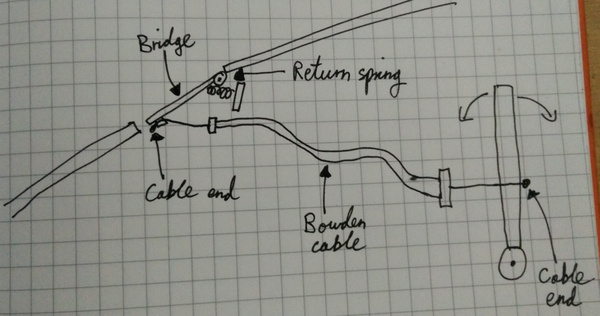 Bridge
Return spring
Cable end
Bowden
cable
Cable
end